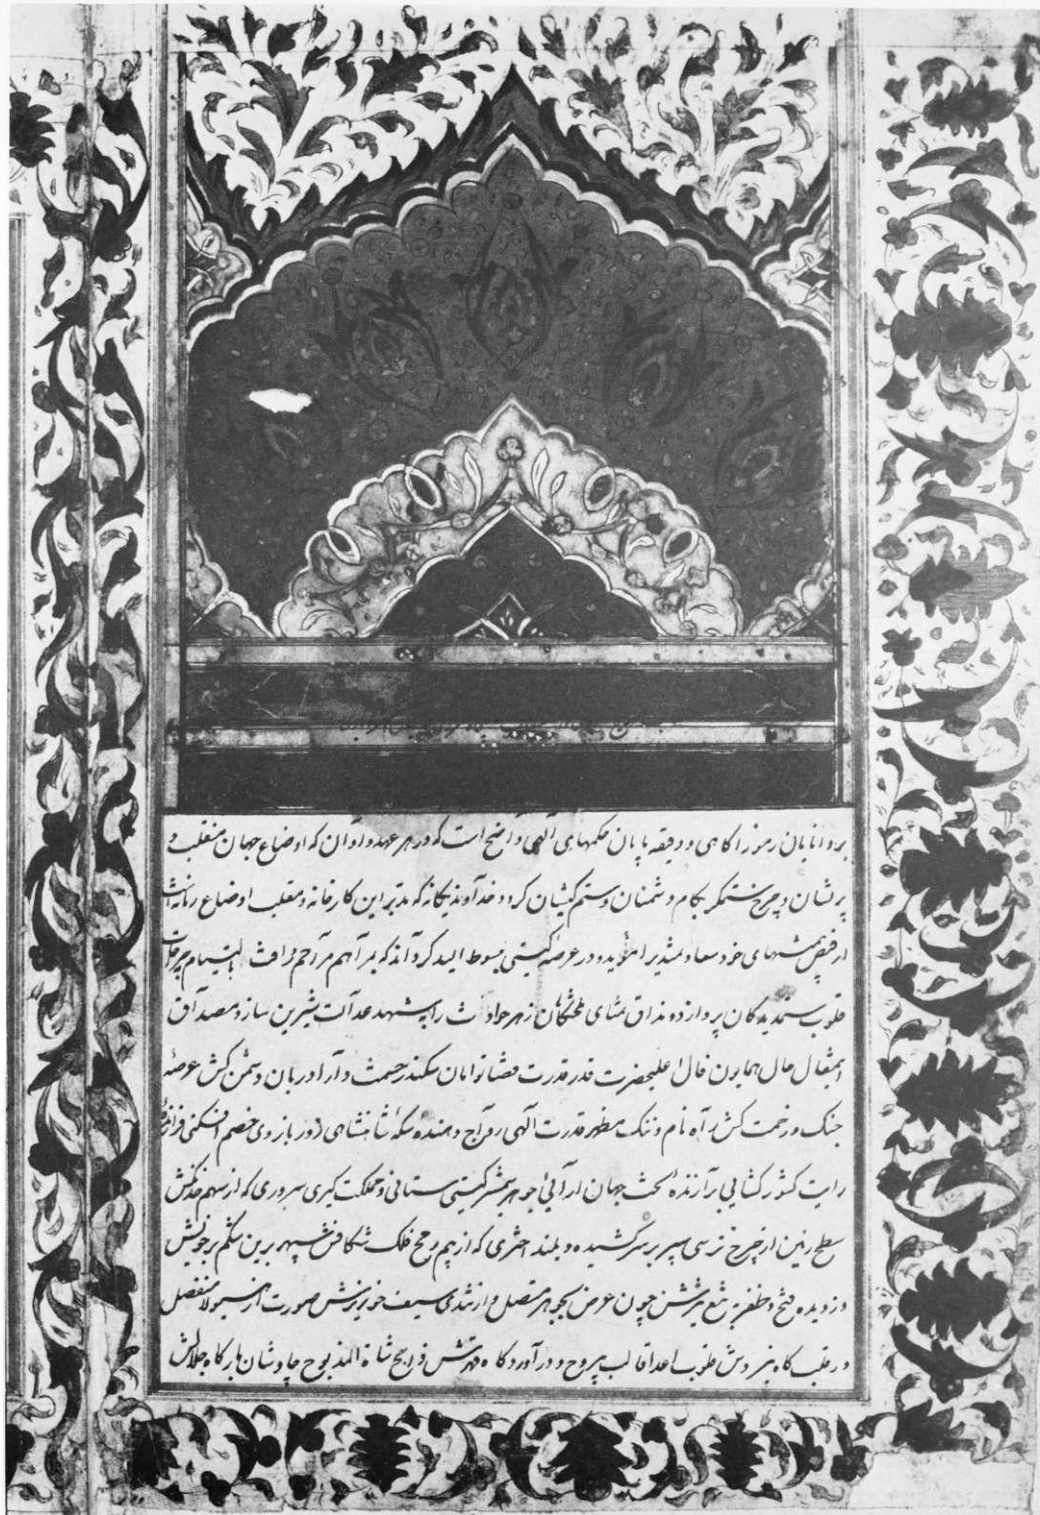 بر دانایان رموز آگاهی و دقیقه یابان حکمتهای آلهی واضح است که در هر عهد و اوان که اوضاع جهان منقلب و
پریشان و چرخ ستمگر بکام دشمنان و ستم کیشان کردد خداوند یکانه که مدبر این کارخانه و مقلب اوضاع زمانه است
از فیض بخششهای خود سعادتمندیرا مؤید و در عرصه کیتی مبسوط الید کرداند که بمراهم مراحم و رافت بالتیام جراحات
قلوب ستمدیدکان پردازد و مذاق تمنای تلخکامان زهر حوادث را بشهد عدالت شیرین سازد مصداق
اینمقال حال همایون فال اعلیحضرت قدر قدرت قضا توامان سکندر حشمت دارا دربان دشمن کش عرصه
جنک و زحمت کش راه نام و ننک مظهر قدرت آلهی رواج دهنده سکه شاهنشاهی زور بازوی خصم افکنی فرازندهٔ
رایت کشور کشایی برآزنده تخت جهان آرائی جوهر شمشیر کیتی ستانی و مملکت کیری سروری که از سهم خدنکش
سطح زمین از چرخ ترسی سپر بر سر کشیده و بلند اختری که از بیم رمح فلک شکافش سپهر برین شکم بر خویش
دزدیده فتح و ظفر به تیغ تیزش چون عرض بجوهر متصل و از تندی سیف خونریزش صورت از هیولا منفصل
در قلب کاه نبردش قلوب اعدا قالب بیروح و در آوردکاه قهرش ذابح شاة المذبوح چاوشان بارکاه جلالش